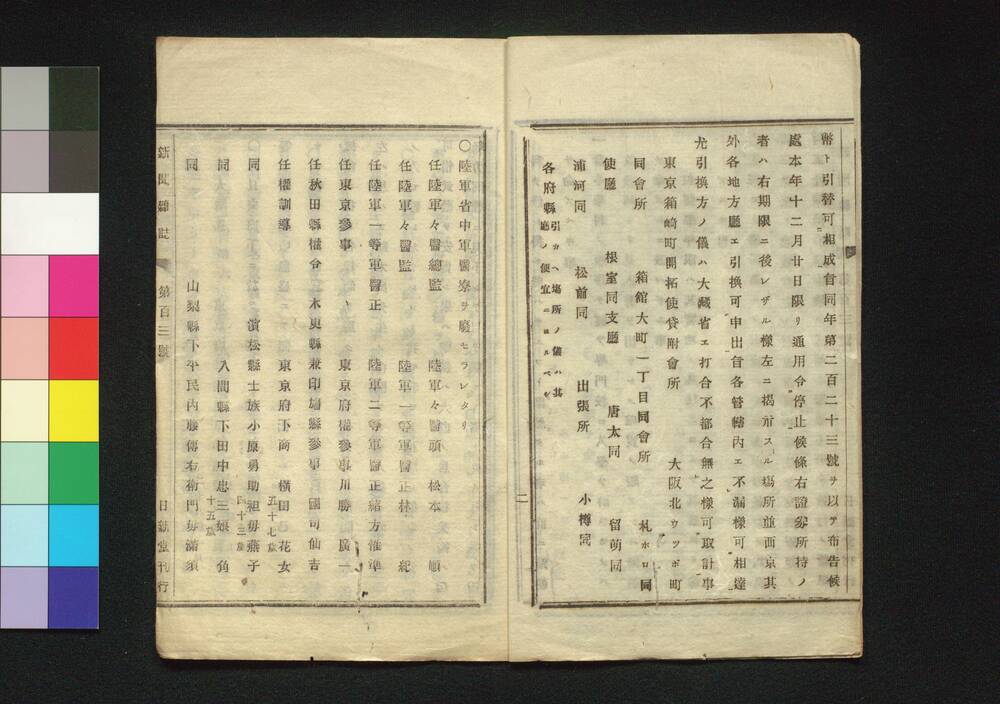 幣ト引替可相成旨同年第二百二十三號ヲ以テ布告候
處本年十二月廿日限リ通用令停止候條右證券所持ノ
者ハ右期限ニ後レザル樣左ニ揭示スル塲所並西京其
外各地方廳エ引換可申出旨各管轄內エ不漏樣可相達
尤引換方ノ儀ハ大藏省エ打合不都合無之樣可取計事
東京箱崎町開拓使貸附會所　大阪北ウツボ町
同會所　箱館大町一丁目同會所　札ホロ同
使廳　根室同支廳　唐太同　留萌同
浦河同　松前同　出張所　小樽
各府縣引カヘ塲所ノ儀ハ其
廳ノ便宜ニヨルベシ
二
〇陸軍省中軍醫寮ヲ廢セラレタリ
任陸軍々醫總監　陸軍々醫頭　松本　順
任陸軍々醫監　陸軍一等軍醫正林　紀
任陸軍一等軍醫正　陸軍二等軍醫正緒方惟準
任東京參事　東京府權參事川勝　廣一
任秋田縣權令　木更縣兼印旛縣參事　國司仙吉
任權訓導　東京府下商　橫田　花女
五十七歲
同　濱松縣士族小原勇助祖母燕子
四十三歲
同　入間縣下田中忠三娘　角
十五歲
同　山梨縣下平民內藤傳右衛門母滿須
新聞雜誌　第百三號　日新堂刊行